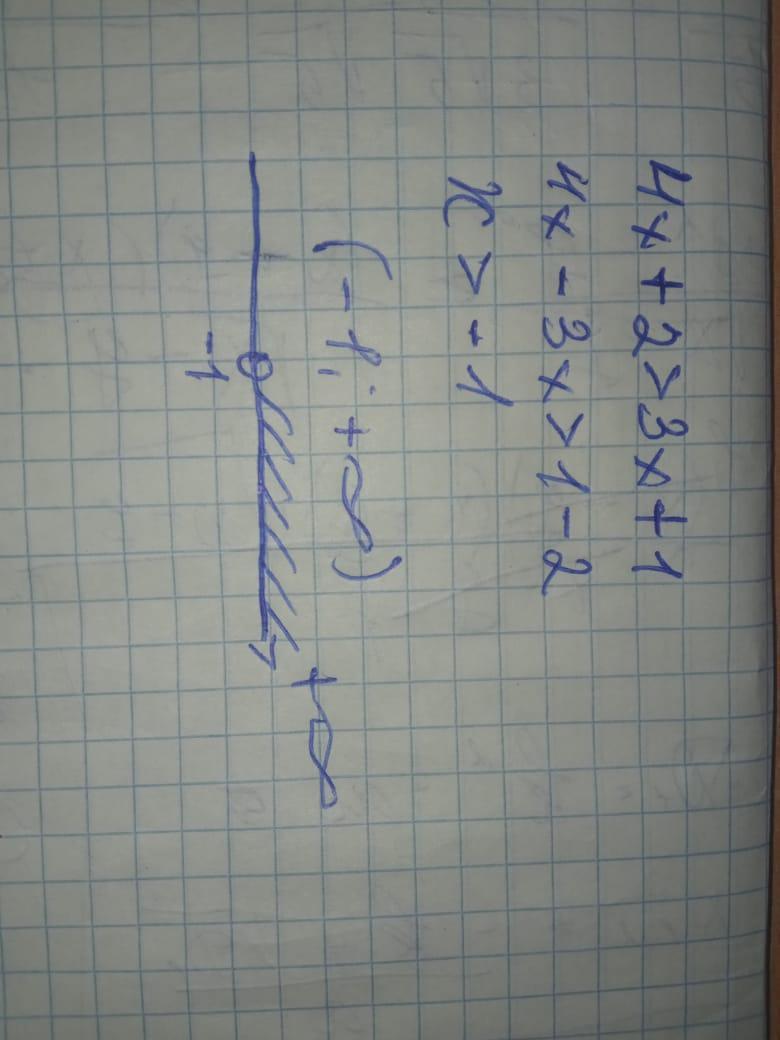 4x+2>3x+1
4x-3x>1-2
x>-1
(-1; +∞)
-1 +∞